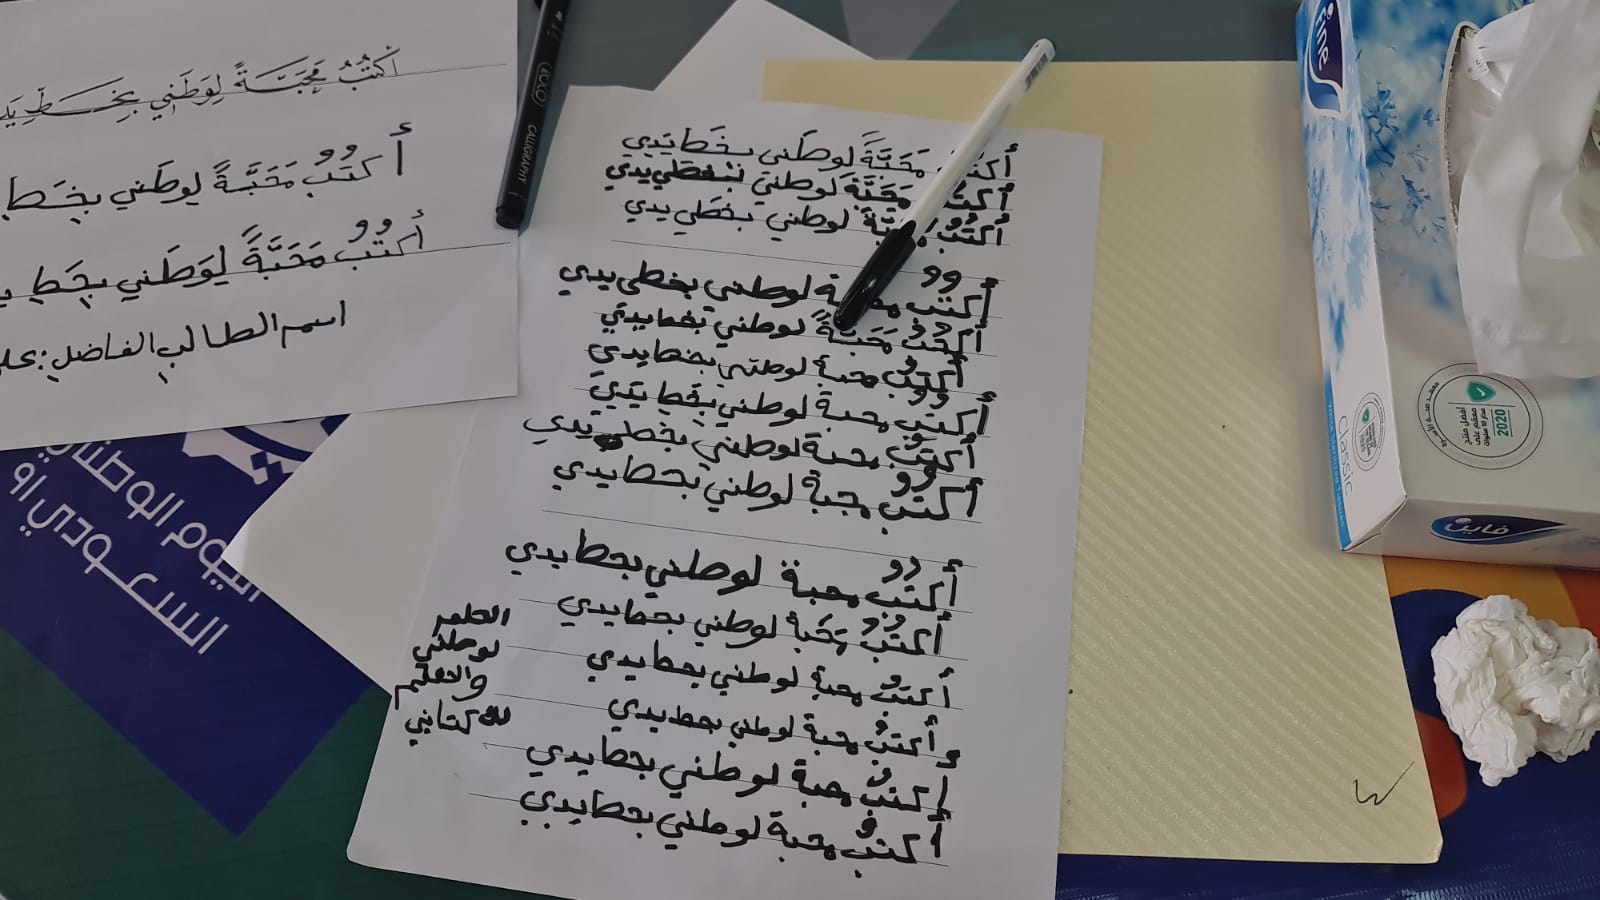 أَكْتُبُ مَحَبَّةً لِوَطَنِي بِخَطِّ
أكتُبُ مَحَبَّةً لِوطَني بِخَط
أكتُبُ مَحَبَّةً لِوَطَني بِخَطِ
اسم الطالب الفاضل:
KOKO
CALLIGRAPHY
مَحَبَّةً لوطَني بخَط يَدي
أكتُب مَحَبَّةَ لوطني بخطي يدي
أكتُبُ لوطني بخطي يدي
أكتب لوطني بخطي يدي
أكتُبُ مَحَبَةً لوطني بخط يدي
أكتُبُ محبة لوطني بخط يدي
أكتُبُ محبة لوطني بخط يدي
أكتُبُ محبة لوطني بخط يدي
أكتُبُ محبة لوطني بخط يدي
أكتُبُ محبة لوطني بخط يدي
أكتُبُ مَحَبة لوطني بخط يدي
أكتبُ محبة لوطني بخط يدي
وأكتبُ محبة لوطني بخط يدي
أكتبُ محبة لوطني بخط يدي
أكتبُ محبة لوطني بخط يدي
لوطني
كتابي
اليوم الوطني
السعودي ٩١
Fine
فاين
Classic
أفضل منتج
2020